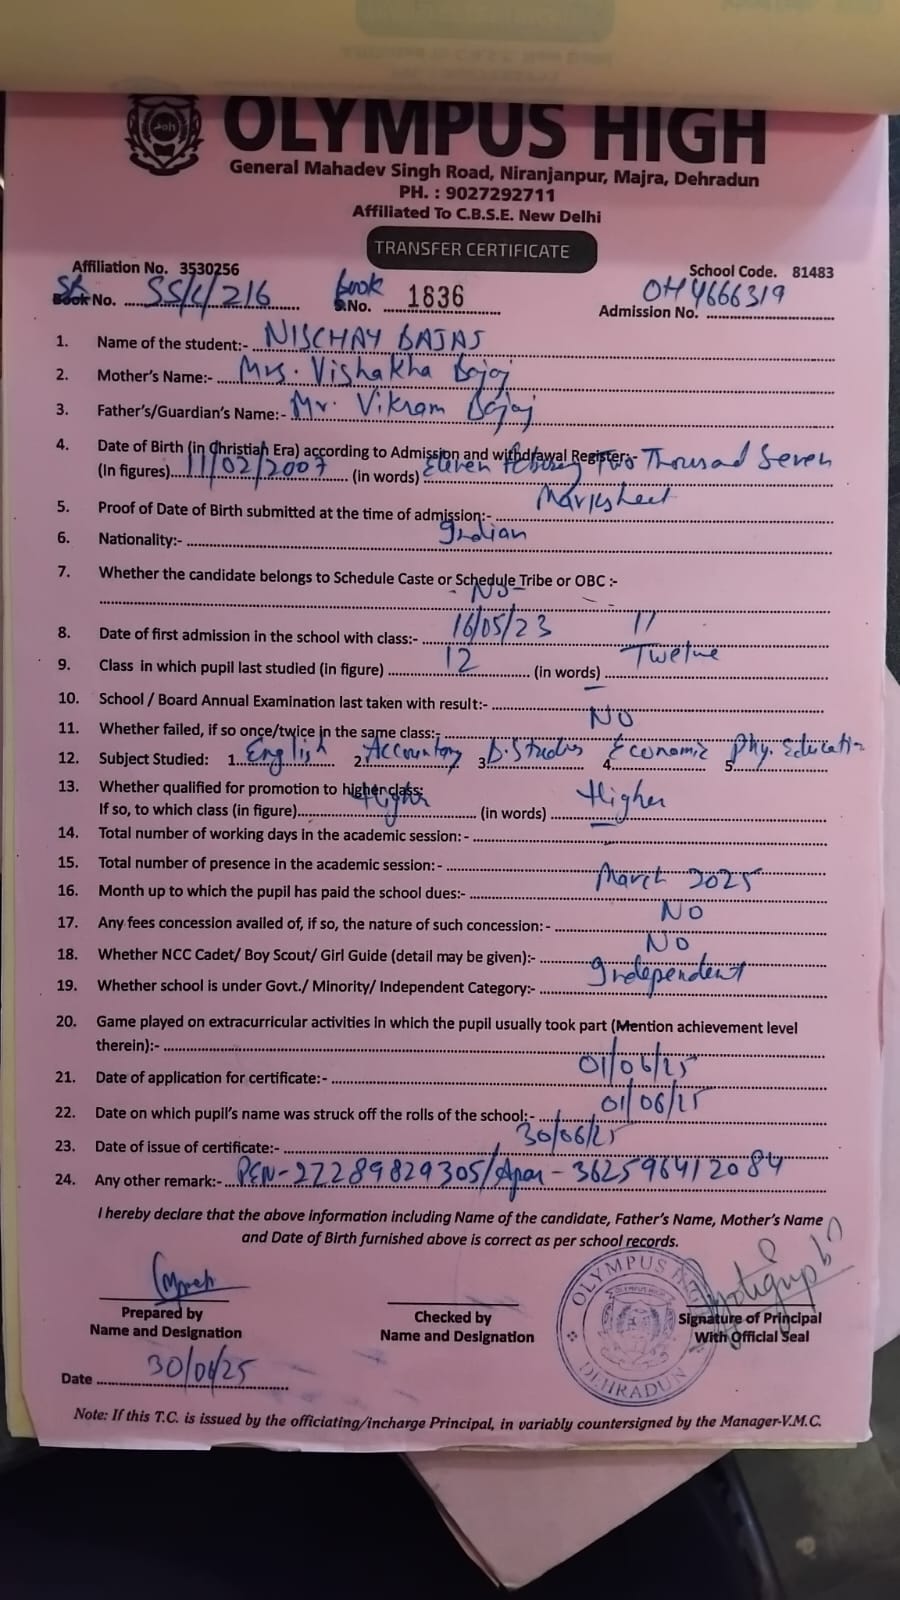 OLYMPUS HIGH
General Mahadev Singh Road, Niranjanpur, Majra, Dehradun
PH. : 9027292711
Affiliated To C.B.S.E. New Delhi
TRANSFER CERTIFICATE
Affiliation No. 3530256 School Code. 81483
SR Book No. SS/C/216 Book S.No. 1836 Admission No. OH4666319
1. Name of the student:- NISCHAY BAJAJ
2. Mother's Name:- Mrs. Vishakha Bajaj
3. Father's/Guardian's Name:- Mr. Vikram Bajaj
4. Date of Birth (in Christiah Era) according to Admission and withdrawal Register:-
(In figures) 11/02/2007 (in words) Eleven February Two Thousand Seven
5. Proof of Date of Birth submitted at the time of admission:- Marksheet
6. Nationality:- Indian
7. Whether the candidate belongs to Schedule Caste or Schedule Tribe or OBC :-
- No -
8. Date of first admission in the school with class:- 16/05/23 11
9. Class in which pupil last studied (in figure) 12 (in words) Twelve
10. School / Board Annual Examination last taken with result:- -
11. Whether failed, if so once/twice in the same class:- NO
12. Subject Studied: 1. English 2. Accountancy 3. B.Studies 4. Economic 5. Phy. Education
13. Whether qualified for promotion to higher class:
If so, to which class (in figure) Higher (in words) Higher
14. Total number of working days in the academic session: - -
15. Total number of presence in the academic session:-
16. Month up to which the pupil has paid the school dues:- March 2025
17. Any fees concession availed of, if so, the nature of such concession: - NO
18. Whether NCC Cadet/ Boy Scout/ Girl Guide (detail may be given):- NO
19. Whether school is under Govt./ Minority/ Independent Category:- Independent
20. Game played on extracurricular activities in which the pupil usually took part (Mention achievement level
therein):-
21. Date of application for certificate:- 01/06/25
22. Date on which pupil's name was struck off the rolls of the school:- 01/06/25
23. Date of issue of certificate:- 30/06/25
24. Any other remark:- PEN-22289829305/Apar-362596412084
I hereby declare that the above information including Name of the candidate, Father's Name, Mother's Name
and Date of Birth furnished above is correct as per school records.
OLYMPUS HIGH
DEHRADUN
Prepared by Checked by Signature of Principal
Name and Designation Name and Designation With Official Seal
Date 30/06/25
Note: If this T.C. is issued by the officiating/incharge Principal, in variably countersigned by the Manager-V.M.C.